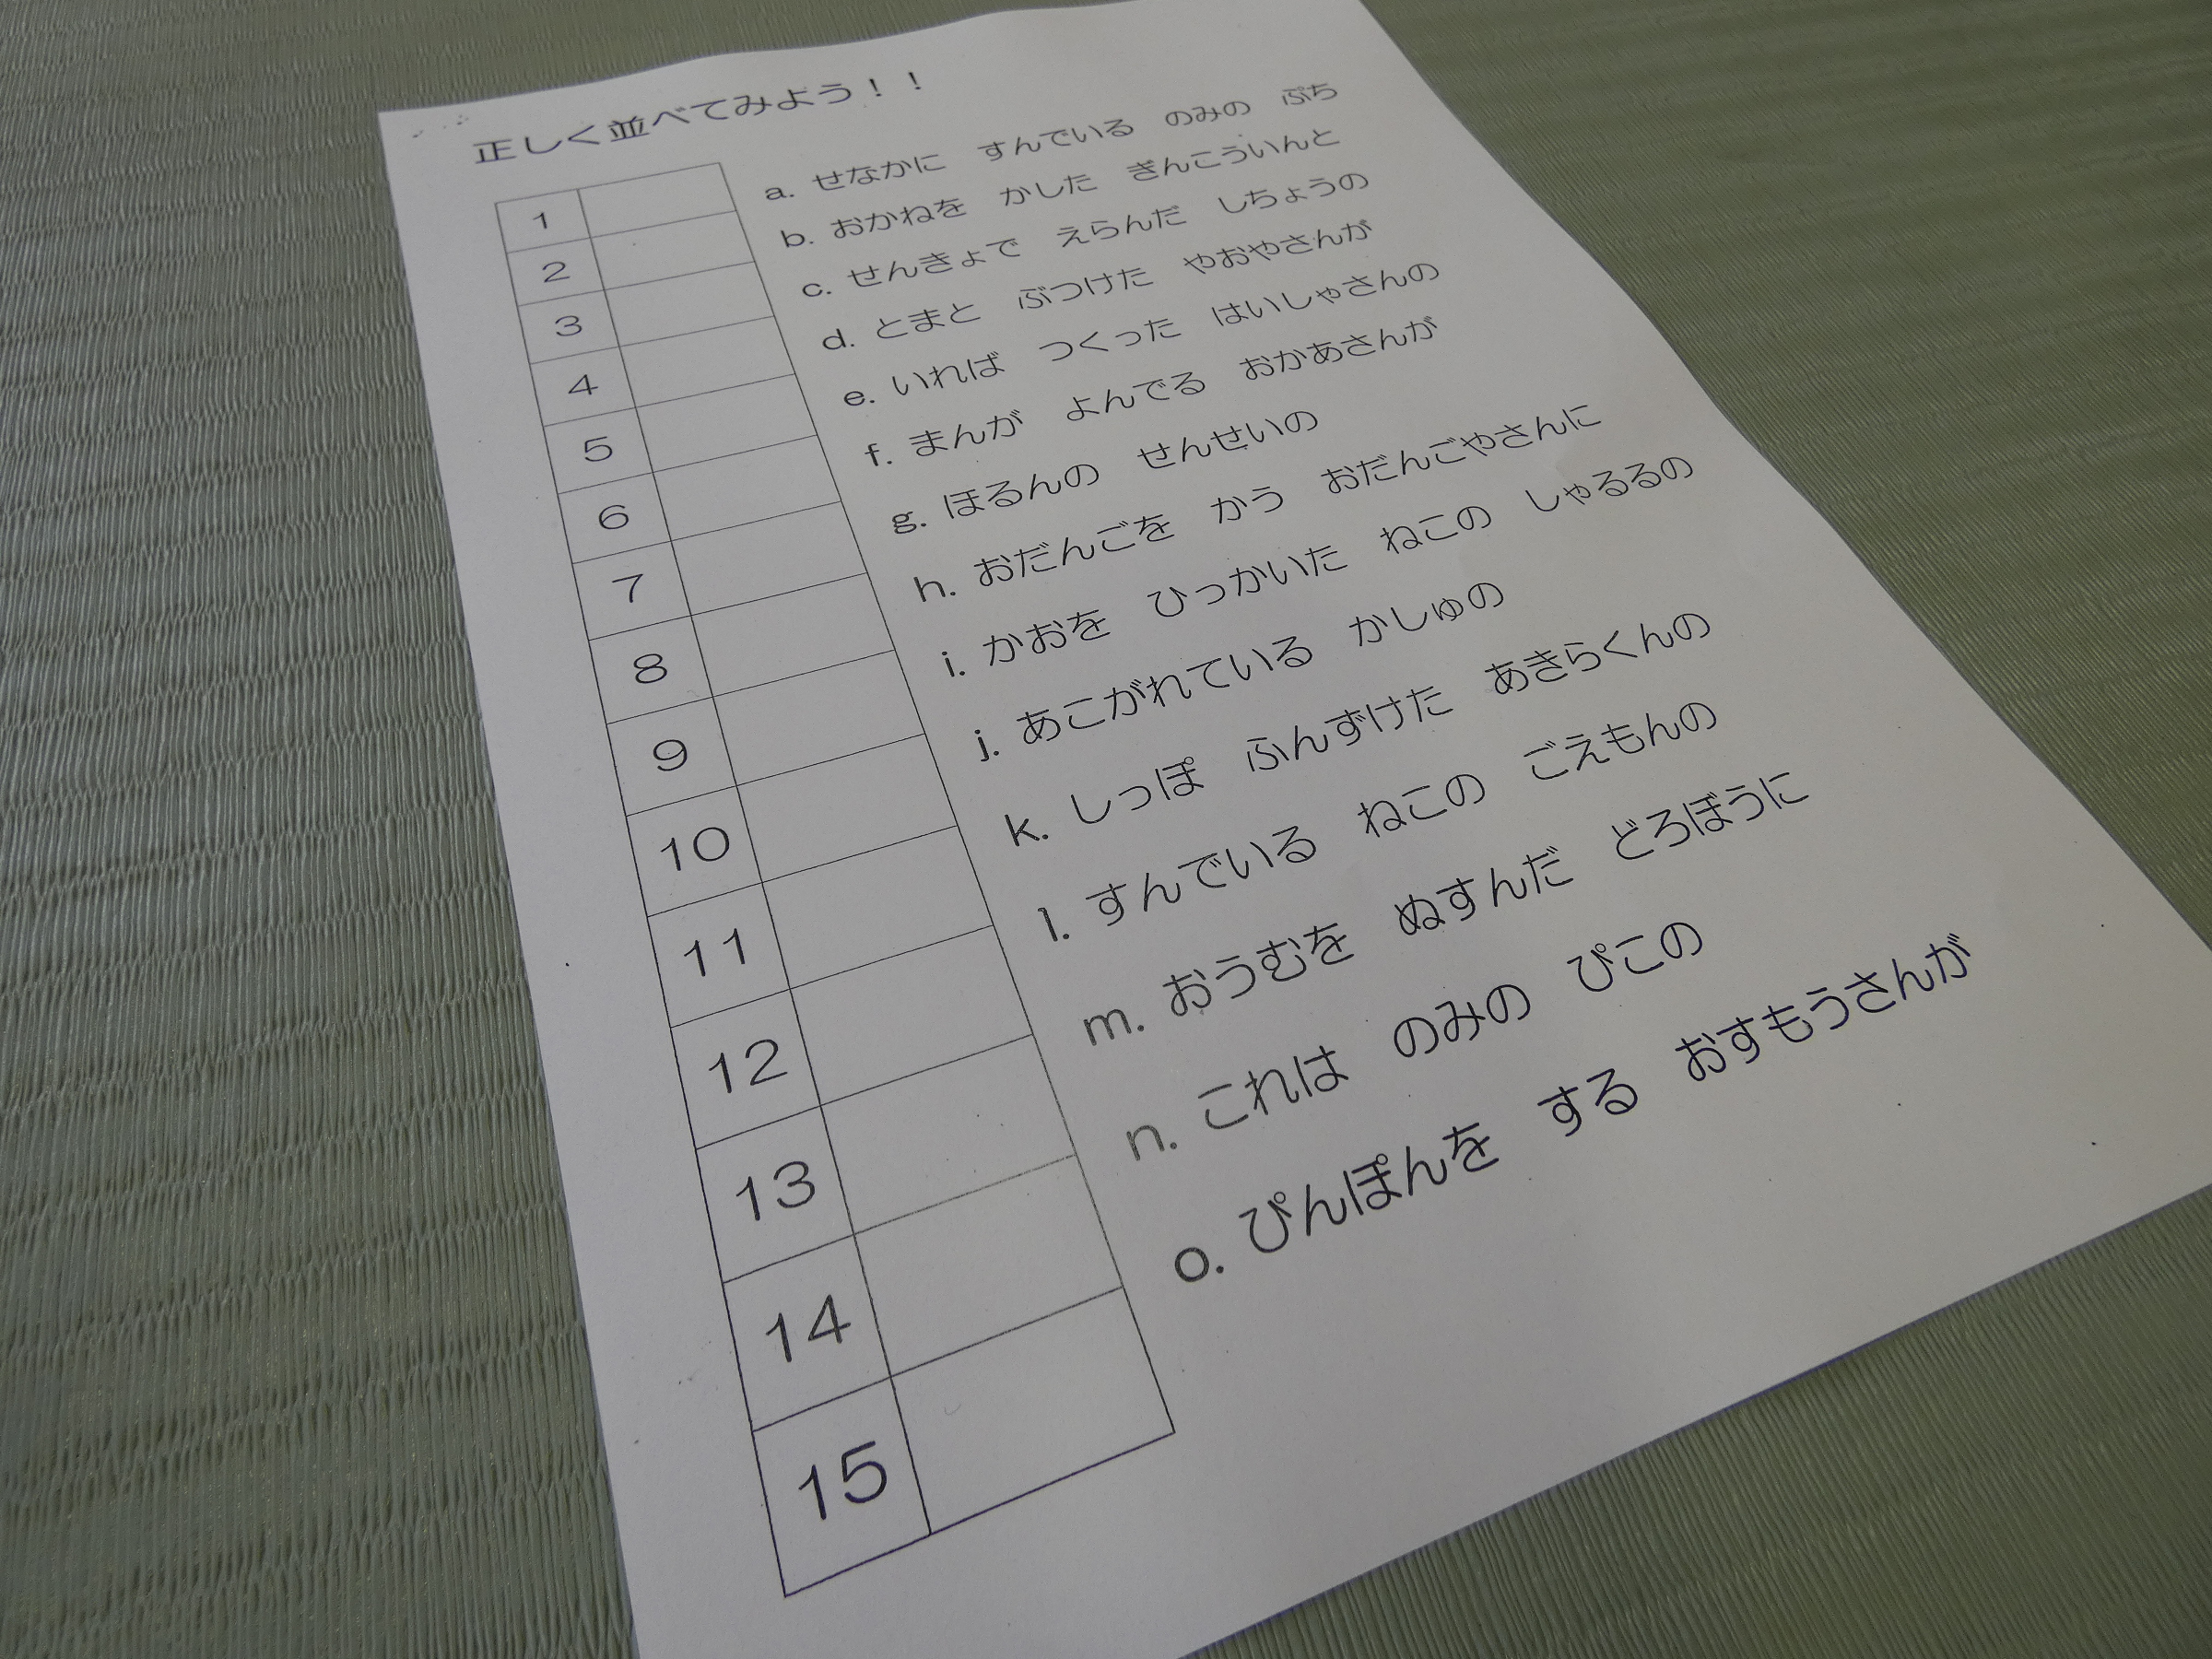 正しく並べてみよう！！
1
2
3
4
5
6
7
8
9
10
11
12
13
14
15
a. せなかに　すんでいる　のみの　ぷち
b. おかねを　かした　ぎんこういんと
c. せんきょで　えらんだ　しちょうの
d. とまと　ぶつけた　やおやさんが
e. いれば　つくった　はいしゃさんの
f. まんが　よんでる　おかあさんが
g. ほるんの　せんせいの
h. おだんごを　かう　おだんごやさんに
i. かおを　ひっかいた　ねこの　しゃるるの
j. あこがれている　かしゅの
k. しっぽ　ふんずけた　あきらくんの
l. すんでいる　ねこの　ごえもんの
m. おうむを　ぬすんだ　どろぼうに
n. これは　のみの　ぴこの
o. ぴんぽんを　する　おすもうさんが